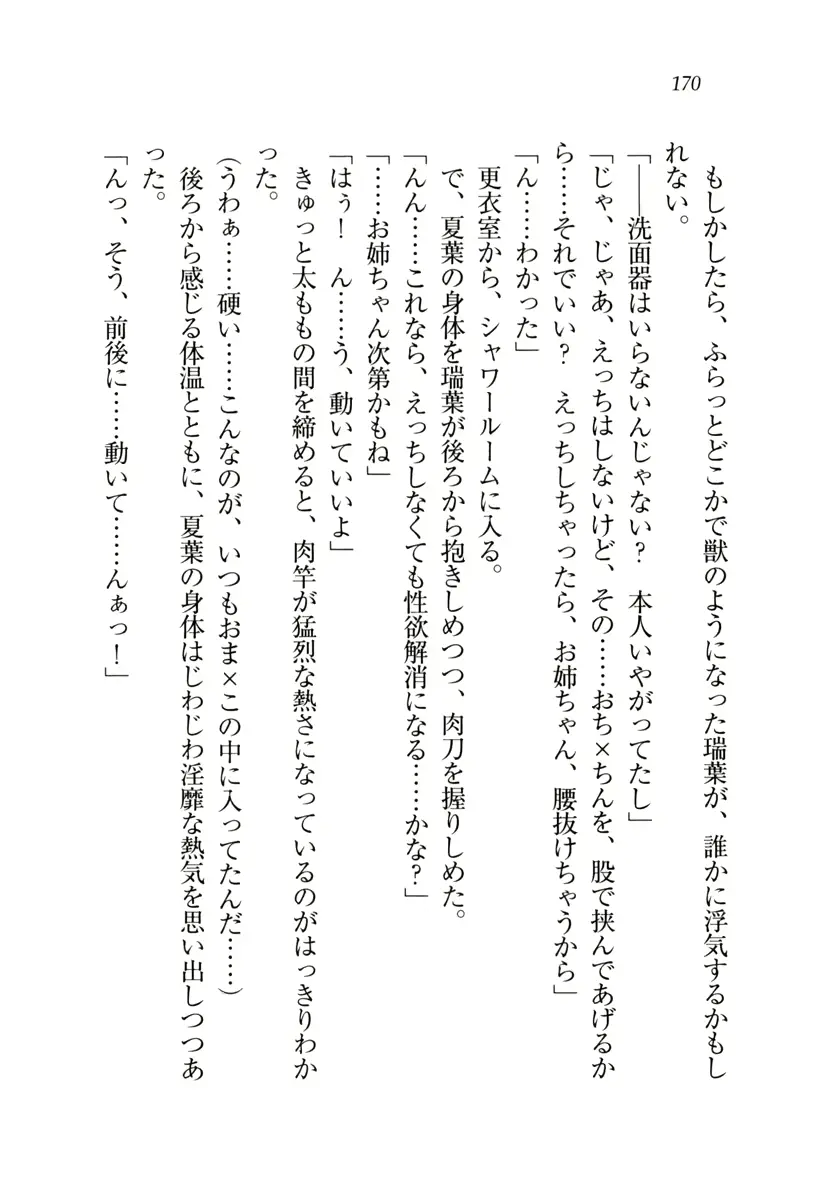 170
もしかしたら、ふらっとどこかで獣のようになった瑞葉が、誰かに浮気するかもし
れない。
「――洗面器はいらないんじゃない?　本人いやがってたし」
「じゃ、じゃあ、えっちはしないけど、その……おち×ちんを、股で挟んであげるか
ら……それでいい?　えっちしちゃったら、お姉ちゃん、腰抜けちゃうから」
「ん……わかった」
更衣室から、シャワールームに入る。
で、夏葉の身体を瑞葉が後ろから抱きしめつつ、肉刀を握りしめた。
「んん……これなら、えっちしなくても性欲解消になる……かな?」
「……お姉ちゃん次第かもね」
「はぅ!　ん……う、動いていいよ」
きゅっと太ももの間を締めると、肉竿が猛烈な熱さになっているのがはっきりわか
った。
(うわぁ……硬い……こんなのが、いつもおま×この中に入ってたんだ……)
後ろから感じる体温とともに、夏葉の身体はじわじわ淫靡な熱気を思い出しつつあ
った。
「んっ、そう、前後に……動いて……んぁっ!」